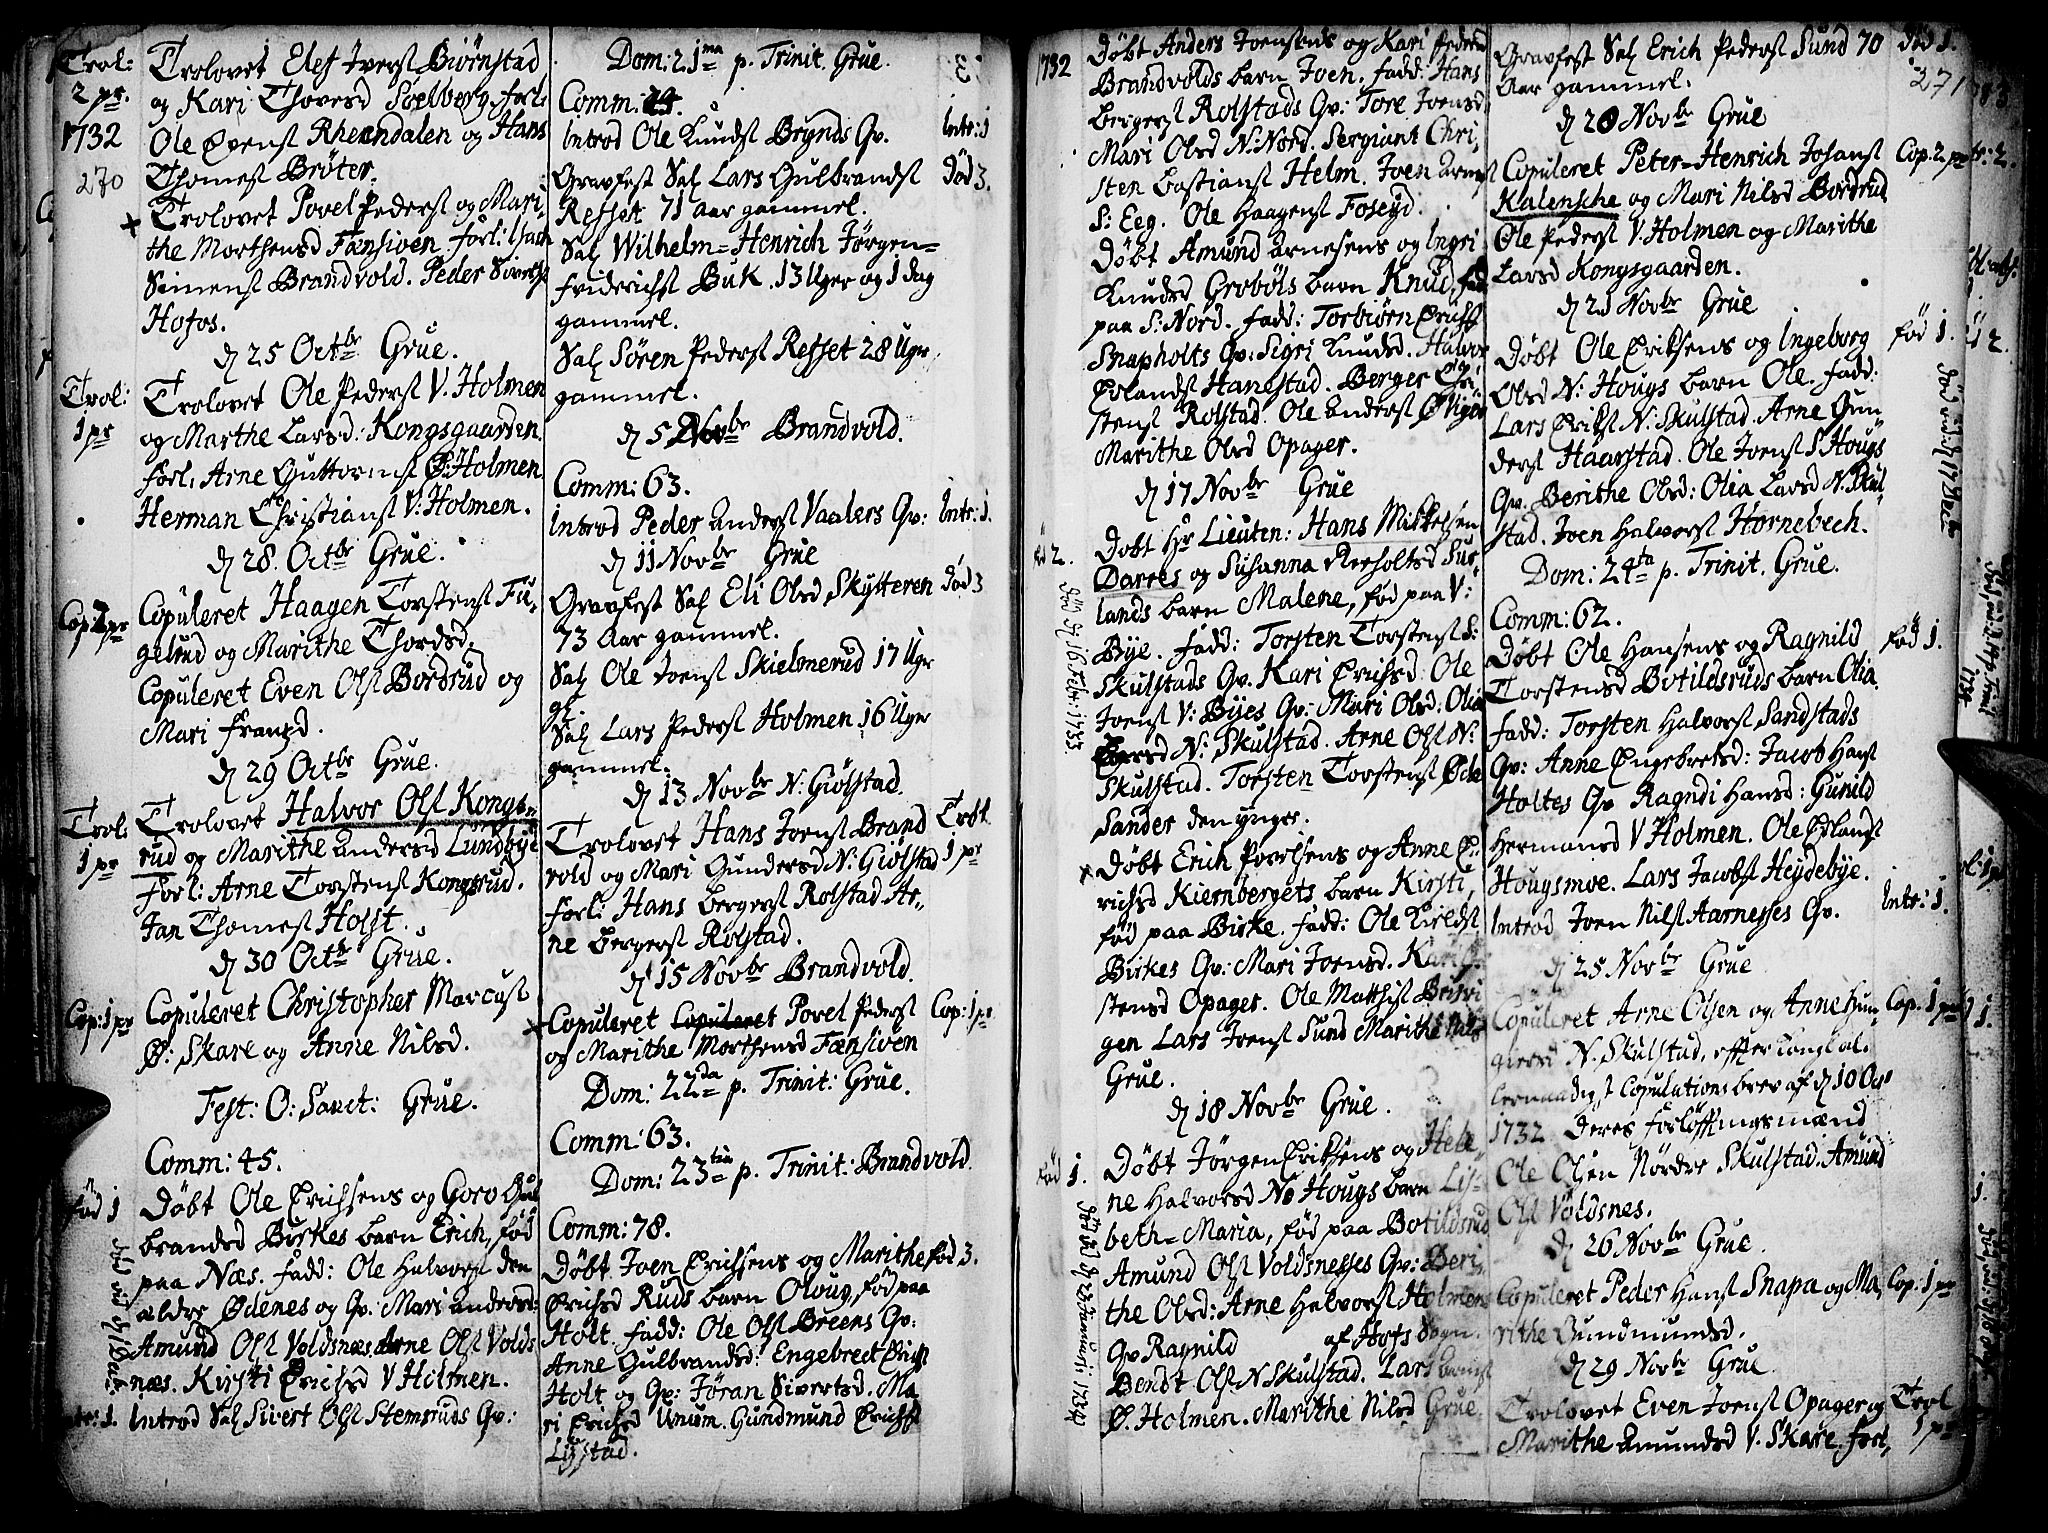 Trol:
2 pr.
1732
270
Trolovet Elef Iverst Biørnstad
og Kari Thovesd Soelberg, forl:
Ole Evenst Rhenndalen og Hans
Thomest Brøter.
Trolovet Povel Pederst og Mari-
the Morthensd Fænsiven, forl: Isach
Simenst Brandvold. Peder Siverst
Hofos.
d 25 Octbr Grue.
Trol:
1 pr
Trolovet Ole Pederst V. Holmen
og Marthe Larsd: Kongsgaarden.
forl: Arne Guttormst Ø: Holmen.
Herman Christianst V: Holmen.
d 28. Octbr Grue.
Cop: 2 pr
Copuleret Haagen Torstenst Fu-
gelund og Marithe Thordsd.
Copuleret Even Olst Bordrud og
Mari Franzd.
d 29 Octbr Grue.
Trol:
1 pr
Trolovet Halvor Olst Kongs-
rud og Marithe Andersd Lundbye
forl: Arne Torstenst Kongsrud.
Jan Thomest Holst.
d 30 Octbr Grue.
Cop: 1 pr
Copuleret Christopher Marcust
Ø: Skare og Anne Nilsd.
Fest: O: Sanct: Grue.
Comm: 45.
fød 1
Døbt Ole Erichsens og Goro Gul
brandsd Birkes barn Erich, fød
paa Næs. fadd: Ole Halvorst den
ældre Ødenes og Qv: Mari Andersd:
Amund Olst Voldsnæs. Arne Olst Volds
næs. Kirsti Erichsd V Holmen.
Intr: 1.
Introd Sal Sivert Olst Stemsruds Qv:
Dom: 21ma p. Trinit. Grue.
Comm: 44.
Introd Ole Knudst Brynds Qv.
Intr: 1
Gravfest Sal Lars Gulbrandst
Død 3.
Resset 71 aar gammel.
Sal Wilhelm=Henrich Jørgen=
friderichst Buk 13 Uger og 1 dag
gammel.
Sal Søren Pederst Resset 28 Uger
gammel.
d 5 Novbr Brandvold.
Comm: 63.
Introd Peder Anderst Vaalers Qv:
Intr: 1.
d 11 Novbr Grue
Gravfest Sal Eli Olsd Skytteren
Død 3
73 Aar gammel.
Sal Ole Joenst Skielmerud 17 Uger
gl.
Sal Lars Pederst Holmen 16 Uger
gammel.
d 13 Novbr N: Giølstad.
Trolovet Hans Joenst Brand
Trol.
1 pr
vold og Mari Gundersd N: Giølstad
forl: Hans Bergerst Rolstad. Ar-
ne Bergerst Rolstad.
d 15 Novbr Brandvold.
Copuleret Copuleret Povel Pederst
Cop: 1 pr
og Marithe Morthensd Fænsiven
Dom: 22da p. Trinit: Grue.
Comm: 63.
Dom: 23tia p. Trinit: Brandvold.
Comm: 78.
Døbt Joen Erichsens og Marithe
fød 3.
Erichsd Ruds barn Oloug, fød paa
Holt. fadd: Ole Olst Breens Qv:
Anne Gulbrandsd: Engebrect Erichst
Holt og Qv: Jøran Sivertsd. Ma-
ri Erichsd Unum. Gundmund Erichst
Lystad.
1732
Døbt Anders Joensens og Kari Pedersd
Brandvolds barn Joen. fadd: Hans
Bergerst Rolstads Qv: Tore Joensd
Mari Olsd N: Nord. Sergiant Chri-
sten Bastianst Helm. Joen Arnest
S: Eeg. Ole Haagenst Foseyd.
Døbt Amund Arnesens og Ingri
Knudsd Grobøls barn Knud, fød
paa S: Nord. fadd: Torbiørn Erichst
Snapholts Qv: Sigri Knudsd. Halvor
Erlandst Hanestad. Berger Chri-
stenst Rolstad. Ole Anderst Ø Vigen
Marithe Olsd Opager.
d 17 Novbr Grue
Døbt Hr Lieuten: Hans Mikkelsen
Darres og Susanna Neeholtsd Sus-
lands barn Malene, fød paa V:
Bye. fadd: Torsten Torstenst S:
Skulstads Qv. Kari Erichsd: Ole
Joenst V: Byes Qv: Mari Olsd: Olia
N: Skulstad. Arne Olst N:
Skulstad. Torsten Torstenst Øde
Sander den ynger.
Døbt Erich Povelsens og Anne E-
richsd Kiernbergets barn Kirsti,
fød paa Birke. fadd: Ole Kieldst
Birkes Qv: Mari Joensd. Kari
stensd Opager. Ole Matthist
gen Lars Joenst Sund Marithe Nils
Grue.
d 18 Novbr Grue.
fød 1.
Døbt Jørgen Eriksens og Hele-
ne Halvorsd No Hougs barn Lis-
beth=Maria, fød paa Botildsrud
Amund Olst Voldsnesses Qv: Beri-
the Olsd: Arne Halvorst Holmens
Qv Ragnild af Hofs Sogn.
Bendt Olst N Skulstad. Lars
Ø. Holmen. Marithe Nilsd Grue.
Gravfest Sal Erich Pederst Sund 70
Død 1.
271
Aar gammel.
d 20 Novbr Grue
Copuleret Peter=Henrich Johanst
Cop. 2. pr
Kalensche og Mari Nilsd Bordrud
Ole Pederst V: Holmen og Marithe
Larsd Kongsgaarden.
d 21 Novbr Grue
Døbt Ole Eriksens og Ingeborg
fød 1.
Olsd N: Hougs barn Ole. fadd:
Lars Erikst N. Skulstad. Arne Gun-
derst Haarstad. Ole Joenst S Hougs
Qv. Berithe Olsd: Olia Larsd N. Skul-
stad. Joen Halvorst Hornebech.
Dom: 24ta p. Trinit. Grue.
Comm: 62.
Døbt Ole Hansens og Ragnild
fød 1.
Torstensd Botildsruds barn Olia.
fadd: Torsten Halvorst Sandstads
Qv: Anne Engebretsd: Jacob Hanst
Holtes Qv Ragndi Hansd: Gunild
Hermansd V Holmen. Ole Erlandst
Hougsmoe. Lars Jacobst Heydebye.
Introd Joen Nilst Aarnesses Qv.
Intr: 1.
d 25 Novbr Grue
Copuleret Arne Olsen og Anne Gun-
Cop. 1 pr
giersd N. Skulstad, effter Kongl al-
lernaadigst Copulations brev af d 10 Oct
1732 Deres forløftningsmænd
Ole Olsen Nørdre Skulstad. Amund
Olst Voldsnes.
d 26 Novbr Grue.
Copuleret Peder Hanst Snapa og Ma-
Cop: 1 pr
rithe Gundmundsd.
d 29 Novbr Grue.
Trolovet Even Joenst Opager og
Trol
1 pr
Marithe Amundsd V. Skare. forl,